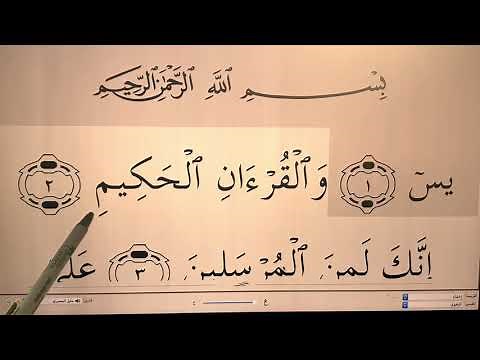 بِسْمِ ٱللَّهِ ٱلرَّحْمَٰنِ ٱلرَّحِيمِ
يسٓ ١ وَٱلْقُرْءَانِ ٱلْحَكِيمِ ٢
إِنَّكَ لَمِنَ ٱلْمُرْسَلِينَ ٣ عَلَىٰ